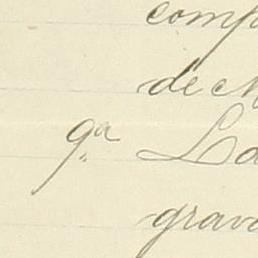 comp
de M
9ª La
grava